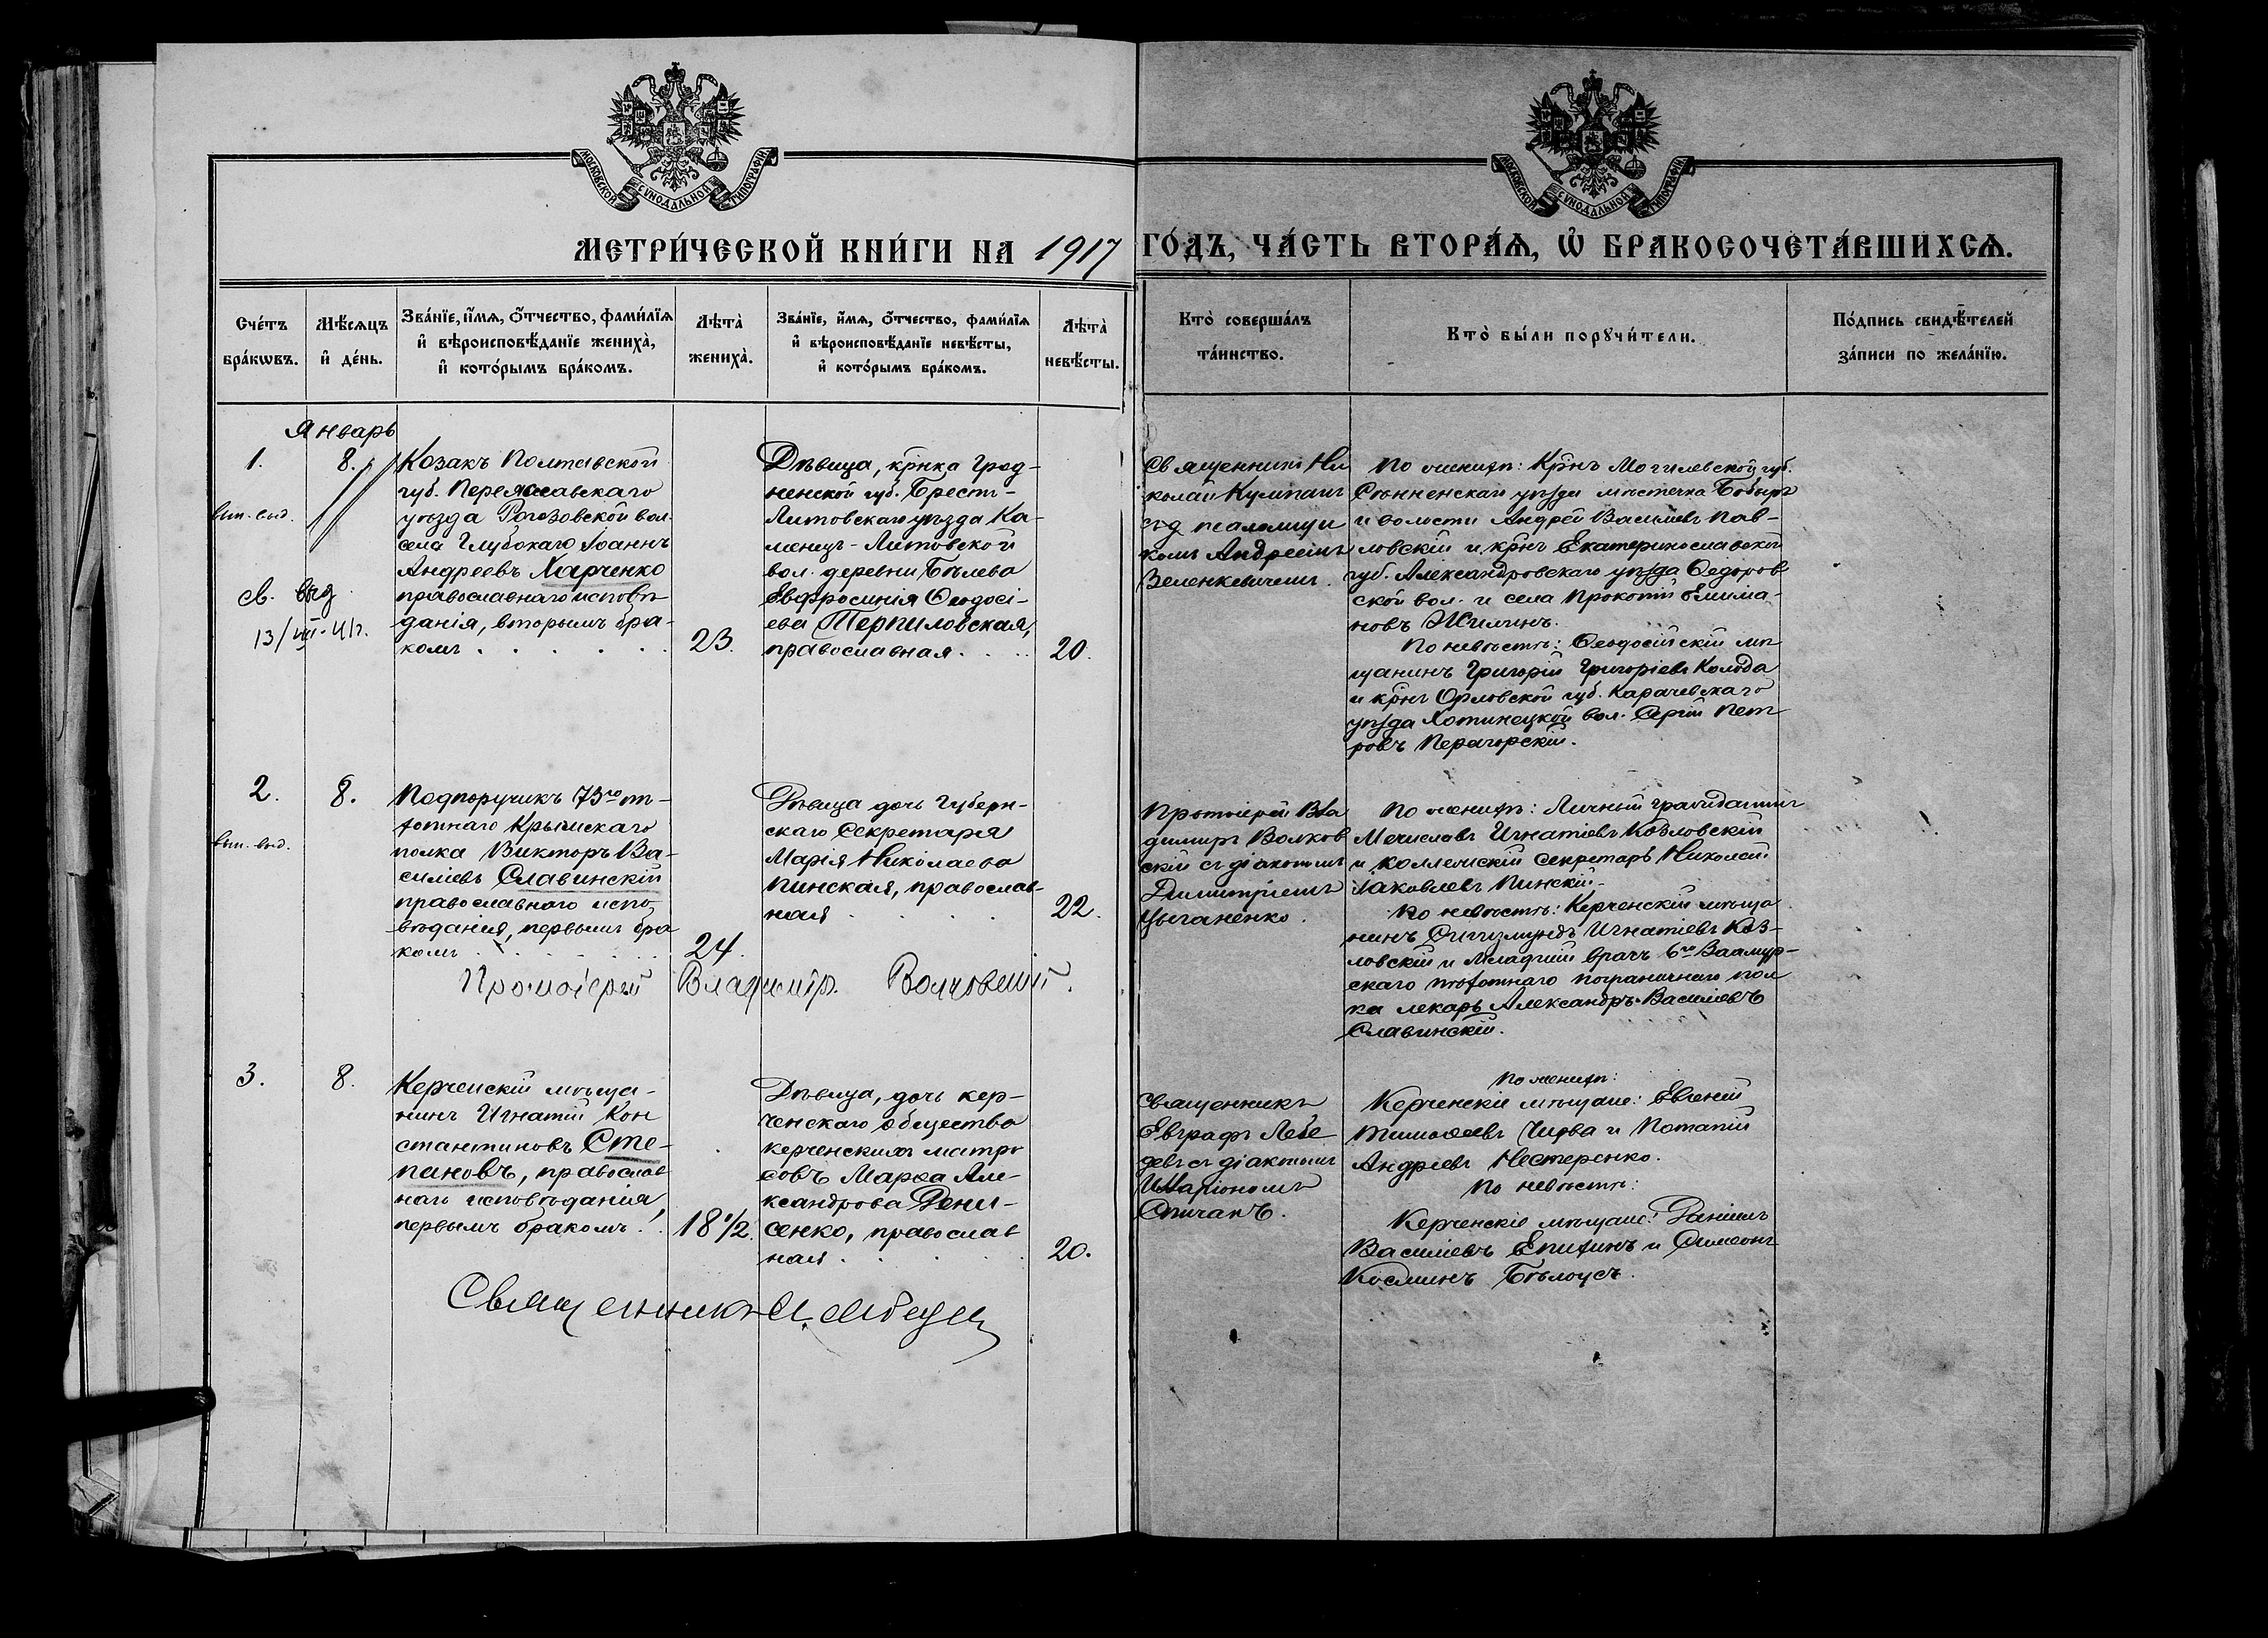 МОСКОВСКОЙ СѴНОДАЛЬНОЙ ТИПОГРАФІИ
МОСКОВСКОЙ СѴНОДАЛЬНОЙ ТИПОГРАФІИ
МЕТРИ́ЧЕСКОЙ КНИ́ГИ НА 1917 ГО́ДЪ, ЧА́СТЬ ВТОРА́Ѧ, Ѽ БРАКОСОЧЕТА́ВШИХСѦ.
Сче́тъ
бра́кѡвъ.
Мѣ́сѧцъ
и҆ де́нь.
Зва́нїе, и҆́мѧ, ѻ҆́тчество, фами́лїѧ
и҆ вѣроисповѣ́данїе жениха̀,
и҆ кото́рымъ бра́комъ.
Лѣта̀
жениха̀.
Зва́нїе, и҆́мѧ, ѻ҆́тчество, фами́лїѧ
и҆ вѣроисповѣ́данїе невѣ́сты,
и҆ кото́рымъ бра́комъ.
Лѣта̀
невѣ́сты.
Кто̀ соверша́лъ
та́инство.
Кто̀ бы́ли порꙋчи́тели.
По́дпись свидѣ́телей
за́писи по жела́нїю.
Январь
1.
8.
вып. выд.
св. выд.
13/VIII-41г.
Козакъ Полтавской
губ. Переяславскаго
уѣзда Рогозовской вол.
села Глубокаго Іоаннъ
Андреевъ Харченко
православнаго исповѣ
данія, вторымъ бра-
комъ . . . . . .
23.
Дѣвица, крнка Грод-
ненской губ. Брестъ-
Литовскаго уѣзда Ка-
менецъ-Литовской
вол. деревни Бѣлево
Евфросинія Ѳеодосі-
ева Терпиловская,
православная . . .
20.
Священникъ Ни
колай Кумпанъ
съ псаломщи
комъ Андреемъ
Зеленкевичемъ.
По женихѣ: Крнъ Могилевской губ.
Сѣнненскаго уѣзда мѣстечка Бобыръ
и волости Андрей Васильевъ Пав-
ловскій и крнъ Екатеринославской
губ. Александровскаго уѣзда Ѳедоров
ской вол. и села Прокопій Емима-
новъ Жилинъ.
По невѣстѣ: Ѳеодосійскій мѣ
щанинъ Григорій Григоріевъ Колода
и крнъ Орловской губ. Карачевскаго
уѣзда Хотинецкой вол. Сергій Пет
ровъ Перагорскій.
2.
8.
вып. выд.
Подпоручикъ 73го пѣ-
хотнаго Крымскаго
полка Викторъ Ва-
силіевъ Славинскій
православнаго испо
вѣданія, первымъ бра
комъ . . . . . .
24.
Дѣвица дочь Губерн-
скаго Секретаря
Марія Николаева
Пинская, православ-
ная . . . .
22.
Протоіерей Вла
димиръ Волков
скій съ діакономъ
Димитріемъ
Цыганенко.
По женихѣ: Личный гражданинъ
Мечиславъ Игнатіевъ Козловскій
и коллежскій секретарь Николай
Іаковлевъ Пинскій.
По невѣстѣ: Керченскій мѣща
нинъ Сигизмундъ Игнатіевъ Коз-
ловскій и младшій врачъ 6го Заамур-
скаго пѣхотнаго пограничнаго пол
ка лекарь Александръ Василіевъ
Славинскій.
Протоіерей Владиміръ Волковскій.
3.
8.
Керченскій мѣща-
нинъ Игнатій Кон
стантиновъ Сте-
пановъ, православ
наго исповѣданія,
первымъ бракомъ . .
18 1/2.
Дѣвица, дочь кер-
ченскаго общества
керченскихъ матро
совъ Марѳа Але-
ксандрова Дени-
сенко, православ
ная . . . .
20.
Священникъ
Евграфъ Лебе
девъ съ діакономъ
Иларіономъ
Спичакъ.
По женихѣ:
Керченскіе мѣщане: Евгеній
Тимоѳеевъ Чирва и Потапій
Андреевъ Нестеренко.
По невѣстѣ:
Керченскіе мѣщане: Даніилъ
Василіевъ Епихинъ и Симеонъ
Косминъ Бѣлоусъ.
Священникъ Е. Лебедевъ